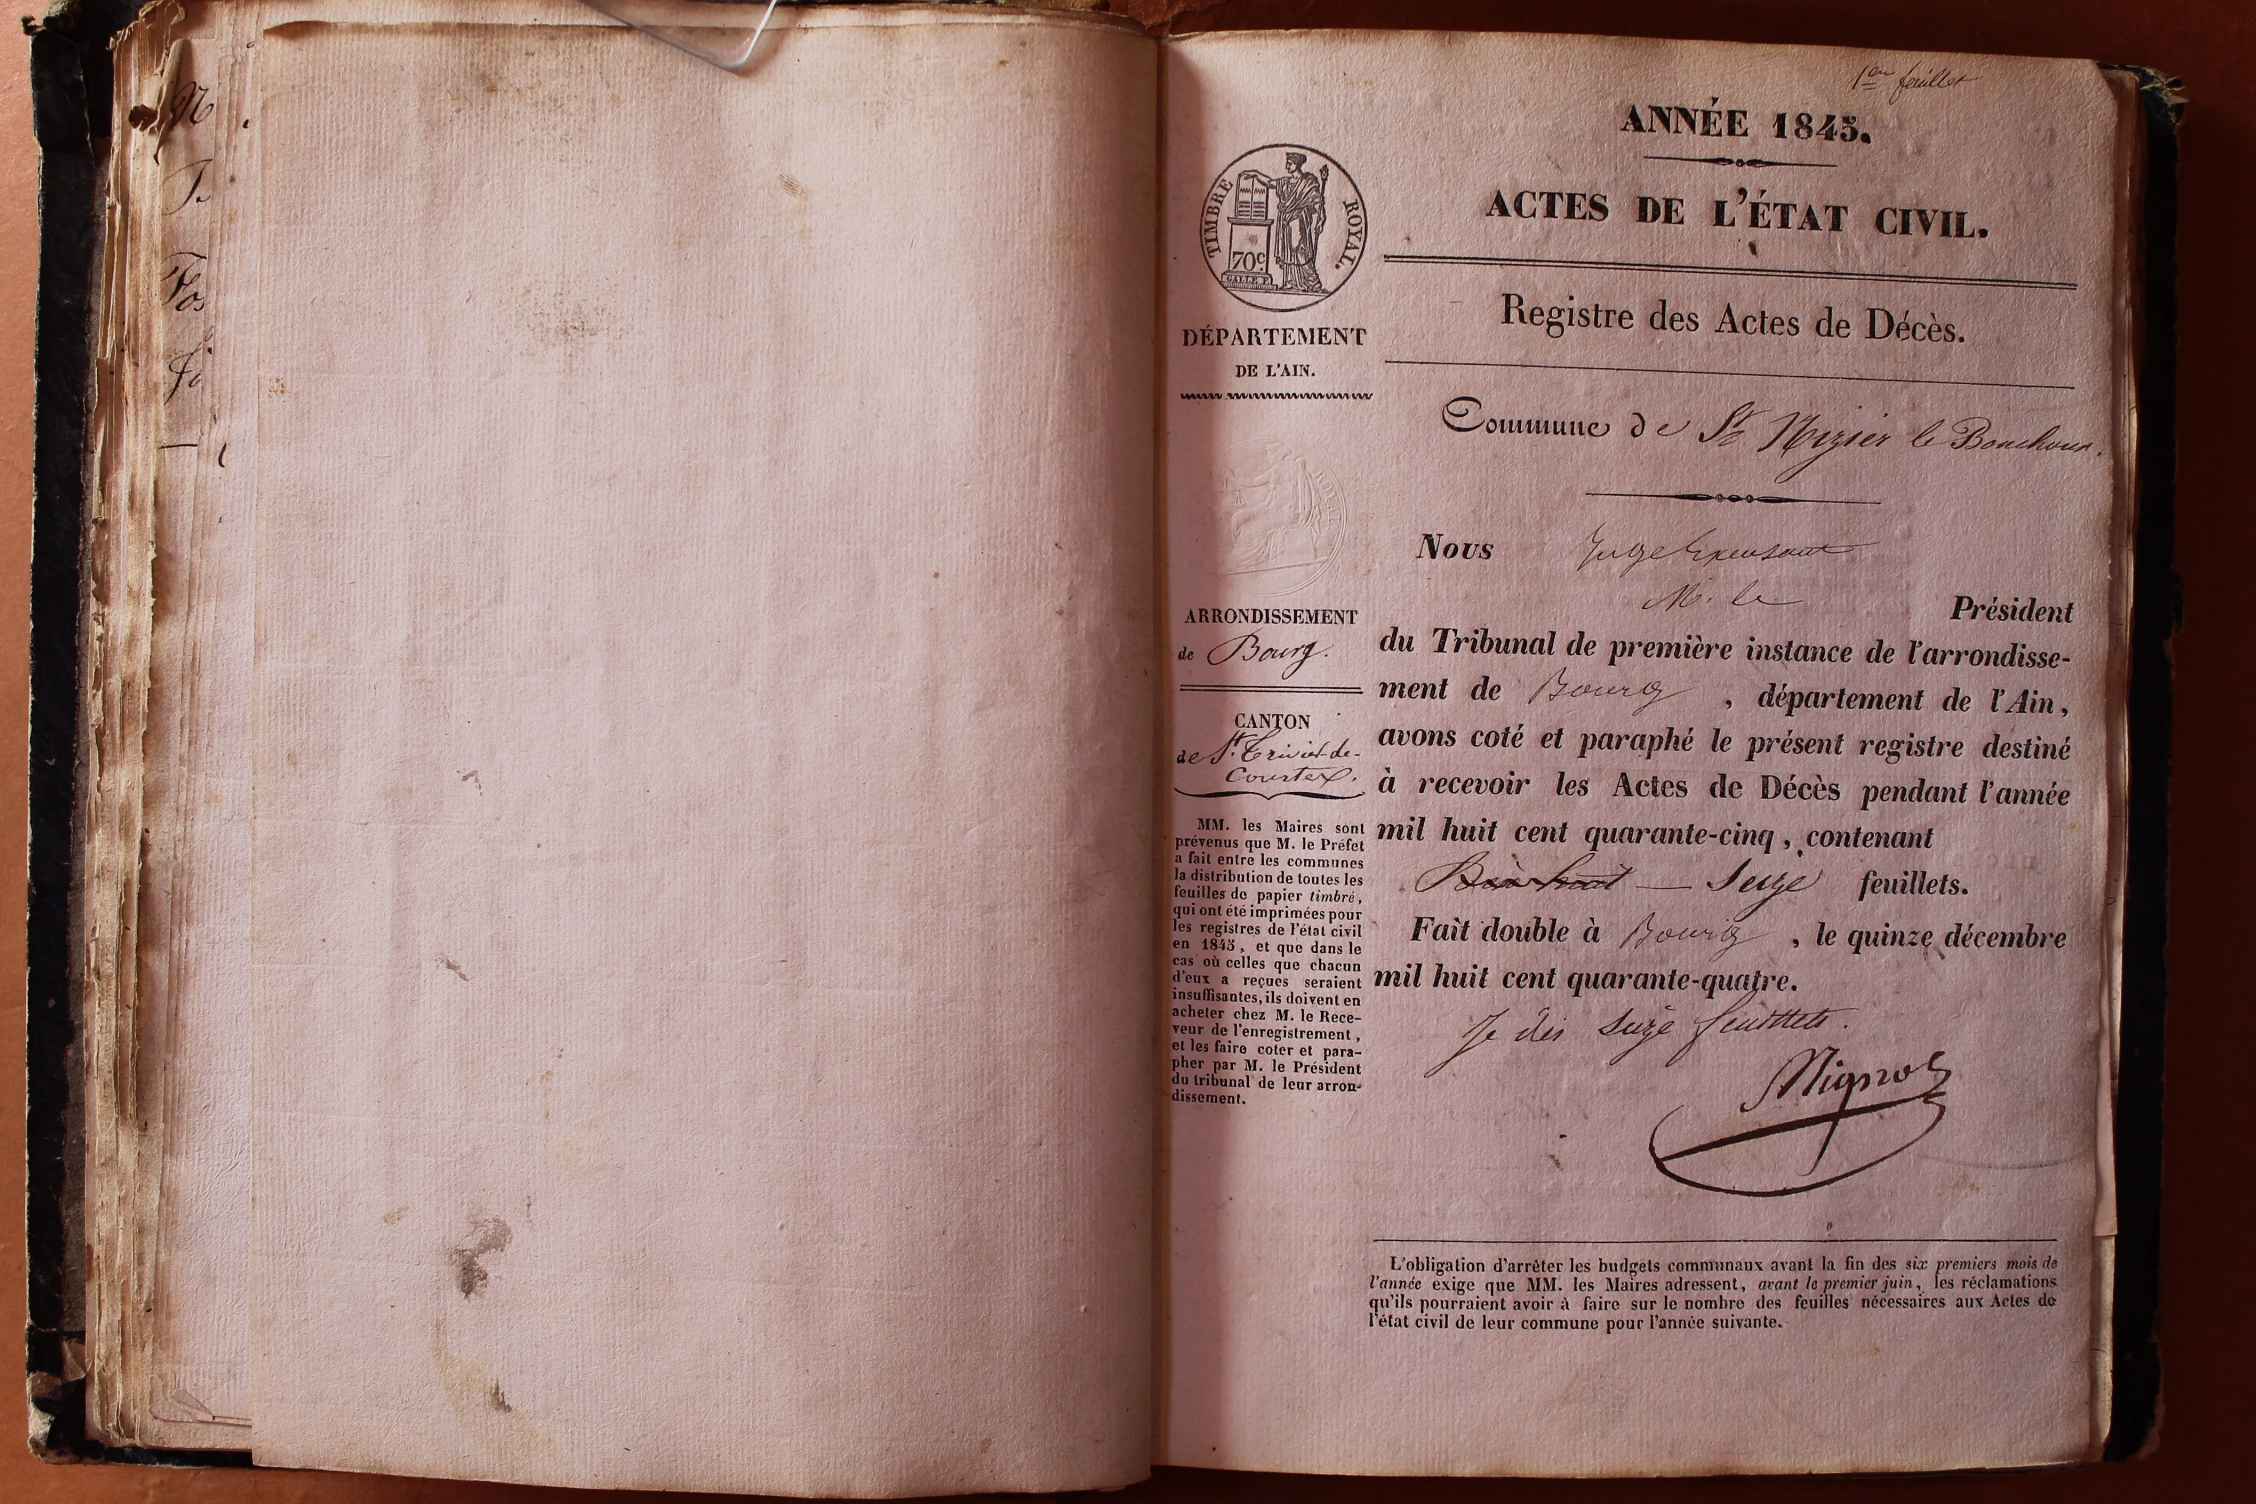 1er feuillet
ANNÉE 1845.
ACTES DE L'ÉTAT CIVIL.
TIMBRE ROYAL.
70c
Registre des Actes de Décès.
DÉPARTEMENT
DE L'AIN.
Commune de St Nizier le Bouchoux.
Nous Juge
M. le Président
du Tribunal de première instance de l'arrondisse-
ment de Bourg, département de l'Ain,
avons coté et paraphé le présent registre destiné
à recevoir les Actes de Décès pendant l'année
mil huit cent quarante-cinq, contenant
Seize feuillets.
Fait double à Bourg, le quinze décembre
mil huit cent quarante-quatre.
Je dis seize feuillets.
ARRONDISSEMENT
de Bourg.
CANTON
de St. Trivier-de-
Courtes.
MM. les Maires sont
prévenus que M. le Préfet
a fait entre les communes
la distribution de toutes les
feuilles de papier timbré,
qui ont été imprimées pour
les registres de l'état civil
en 1845, et que dans le
cas où celles que chacun
d'eux a reçues seraient
insuffisantes, ils doivent en
acheter chez M. le Rece-
veur de l'enregistrement,
et les faire coter et para-
pher par M. le Président
du tribunal de leur arron-
dissement.
L'obligation d'arrêter les budgets communaux avant la fin des six premiers mois de
l'année exige que MM. les Maires adressent, avant le premier juin, les réclamations
qu'ils pourraient avoir à faire sur le nombre des feuilles nécessaires aux Actes de
l'état civil de leur commune pour l'année suivante.